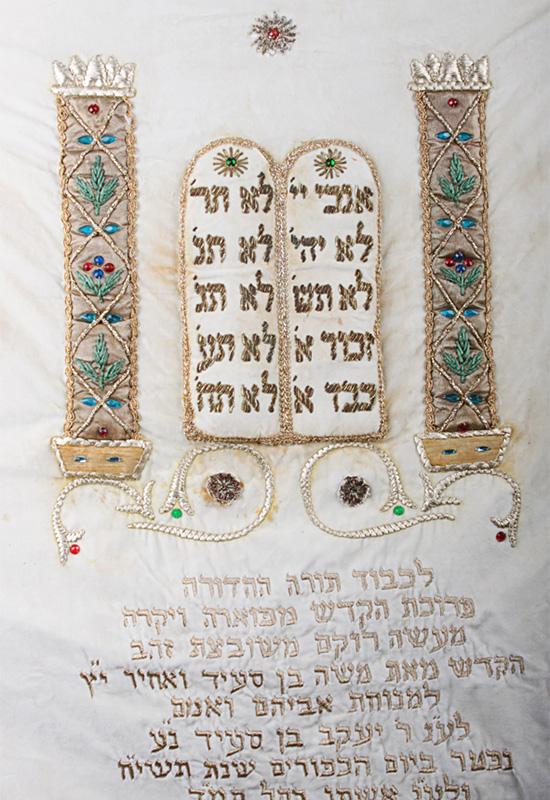 אנכי יי'
לא יהי'
לא תש'
זכור א'
כבד א'
לא תר'
לא תנ'
לא תג'
לא תע'
לא תח'
לכבוד תורה ההדורה
פרוכת הקדש מפוארה ויקרה
מעשה רוקם משובצת זהב
הקדש מאת משה בן סעיד ואחיו י"ץ
למנוחת אביהם ואמם
לע"נ ר' יעקב בן סעיד נ"ע
נפטר ביום הכפורים שנת תשי"ח
ולע"נ אשתו רחל